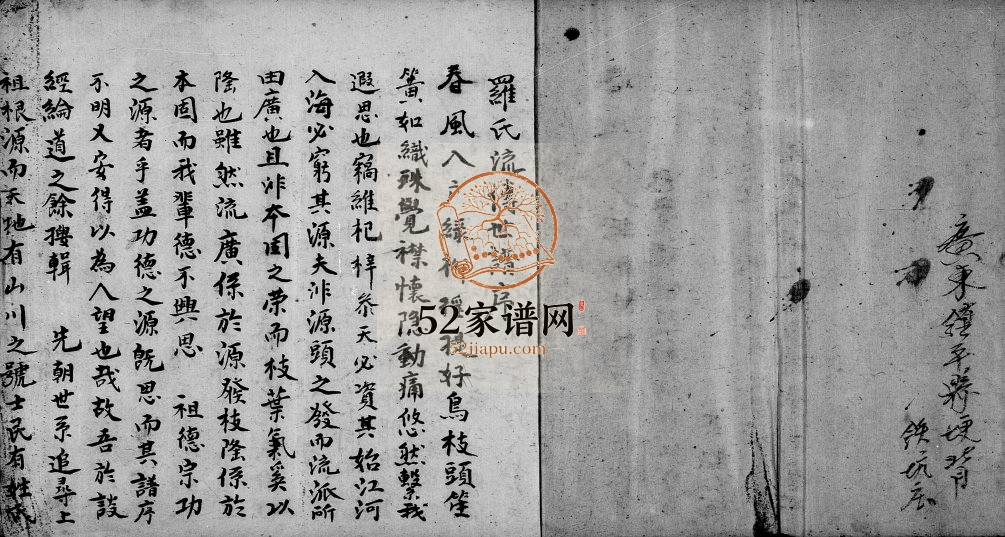 廣東鎮平縣
羅氏流傳世譜序
春風入 好鳥枝頭笙
簧如織殊覺襟懷隐動痛悠然繫我
遐思也竊維杞梓參天必資其始江河
入海必窮其源夫非源頭之發而流派所
由廣也且非本固之荣而枝葉氣奚以
隆也雖然流廣係於源發枝隆係於
本固而我輩德不興思 祖德宗功
之源者乎盖功德之源旣思而其譜序
不明又安得以為人望也哉故吾於談
經綸道之餘搜輯 先朝世系追尋上
祖根源而天地有山川之號士民有姓氏
52家谱网
52jiapu.com